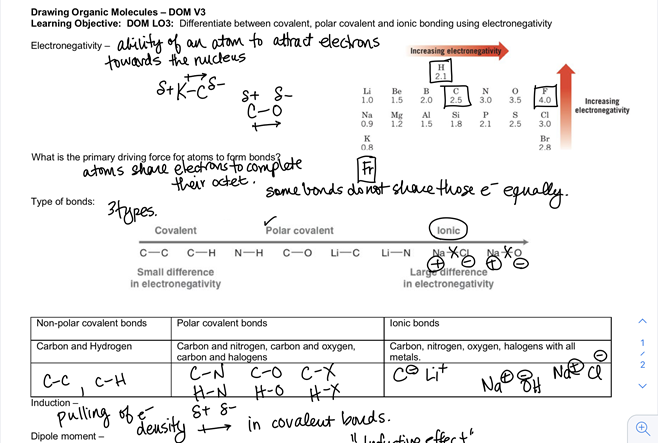 Drawing Organic Molecules – DOM V3
Learning Objective: DOM LO3: Differentiate between covalent, polar covalent and ionic bonding using electronegativity
Electronegativity – ability of an atom to attract electrons
towards the nucleus
δ+ K–C δ-
δ+ δ-
C–O
Increasing electronegativity
H
2.1
Li Be B C N O F
1.0 1.5 2.0 2.5 3.0 3.5 4.0
Na Mg Al Si P S Cl
0.9 1.2 1.5 1.8 2.1 2.5 3.0
K Br
0.8 2.8
Increasing
electronegativity
Fr
What is the primary driving force for atoms to form bonds?
atoms share electrons to complete
their octet.
some bonds do not share those e⁻ equally.
Type of bonds: 3 types.
Covalent Polar covalent Ionic
C—C C—H N—H C—O Li—C Li—N Na X Cl Na X O
+ - + -
Small difference
in electronegativity
Large difference
in electronegativity
Non-polar covalent bonds Polar covalent bonds Ionic bonds
Carbon and Hydrogen Carbon and nitrogen, carbon and oxygen, carbon and halogens Carbon, nitrogen, oxygen, halogens with all metals.
C-C, C-H C-N C-O C-X C⊖ Li+ Na⊕ ⊖OH Na⊕ Cl⊖
H-N H-O H-X
Induction – pulling of e⁻ density δ+ δ- in covalent bonds.
Dipole moment – "Inductive effect"
1
/
2